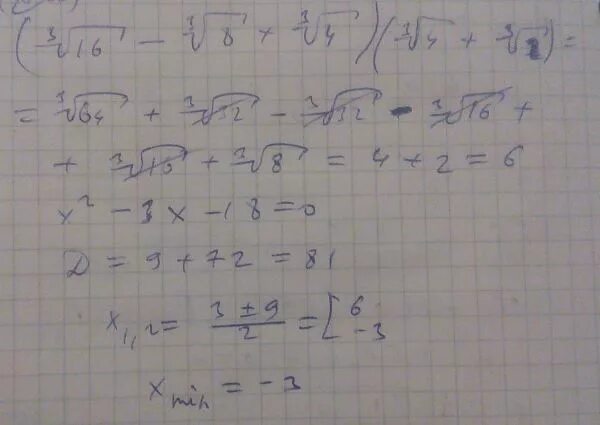 (∛16 − ∛8 + ∛4)(∛4 + ∛2) =
= ∛64 + ∛32 − ∛32 − ∛16 +
+ ∛16 + ∛8 = 4 + 2 = 6
x² − 3x − 18 = 0
D = 9 + 72 = 81
x₁,₂ = (3 ± 9)/2 = [6 −3
x min = −3